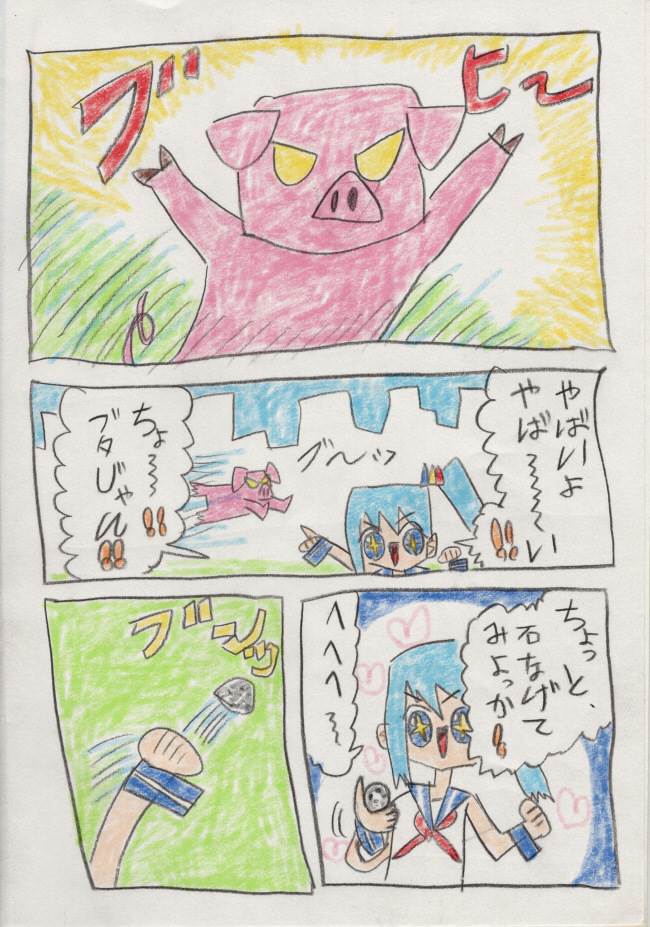 ブヒ〜
やばいよ
やば〜〜い!!
ブ〜ンッ
ちょ〜〜
ブタじゃん!!
ちょっと、
石なげて
みよっか!!
へへへ〜
ブンッ